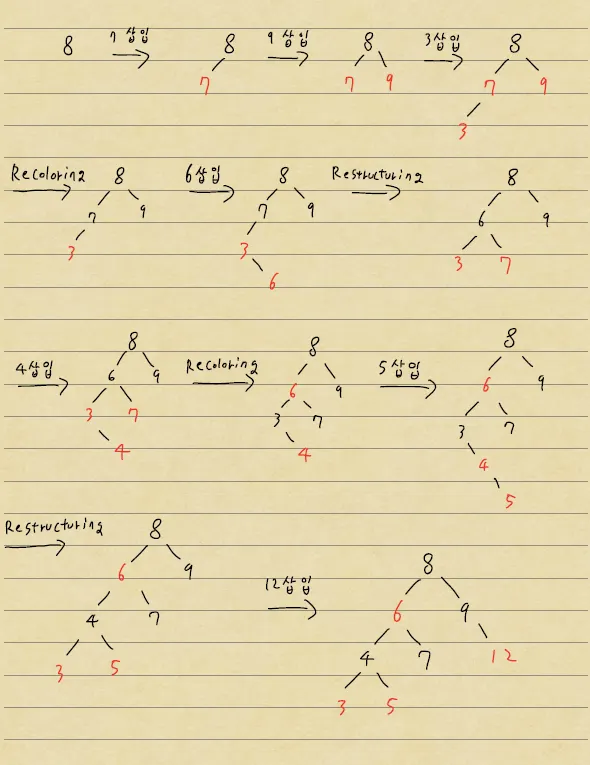 8 7 삽입 8 9 삽입 8 3삽입 8
7 7 9 7 9
3
Recoloring 8 6삽입 8 Restructuring 8
7 9 7 9 6 9
3 3 3 7
6
4삽입 8 Recoloring 8 5삽입 8
6 9 6 9 6 9
3 7 3 7 3 7
4 4 4
5
Restructuring 8
6 9 12삽입 8
4 7 6 9
3 5 4 7 12
3 5